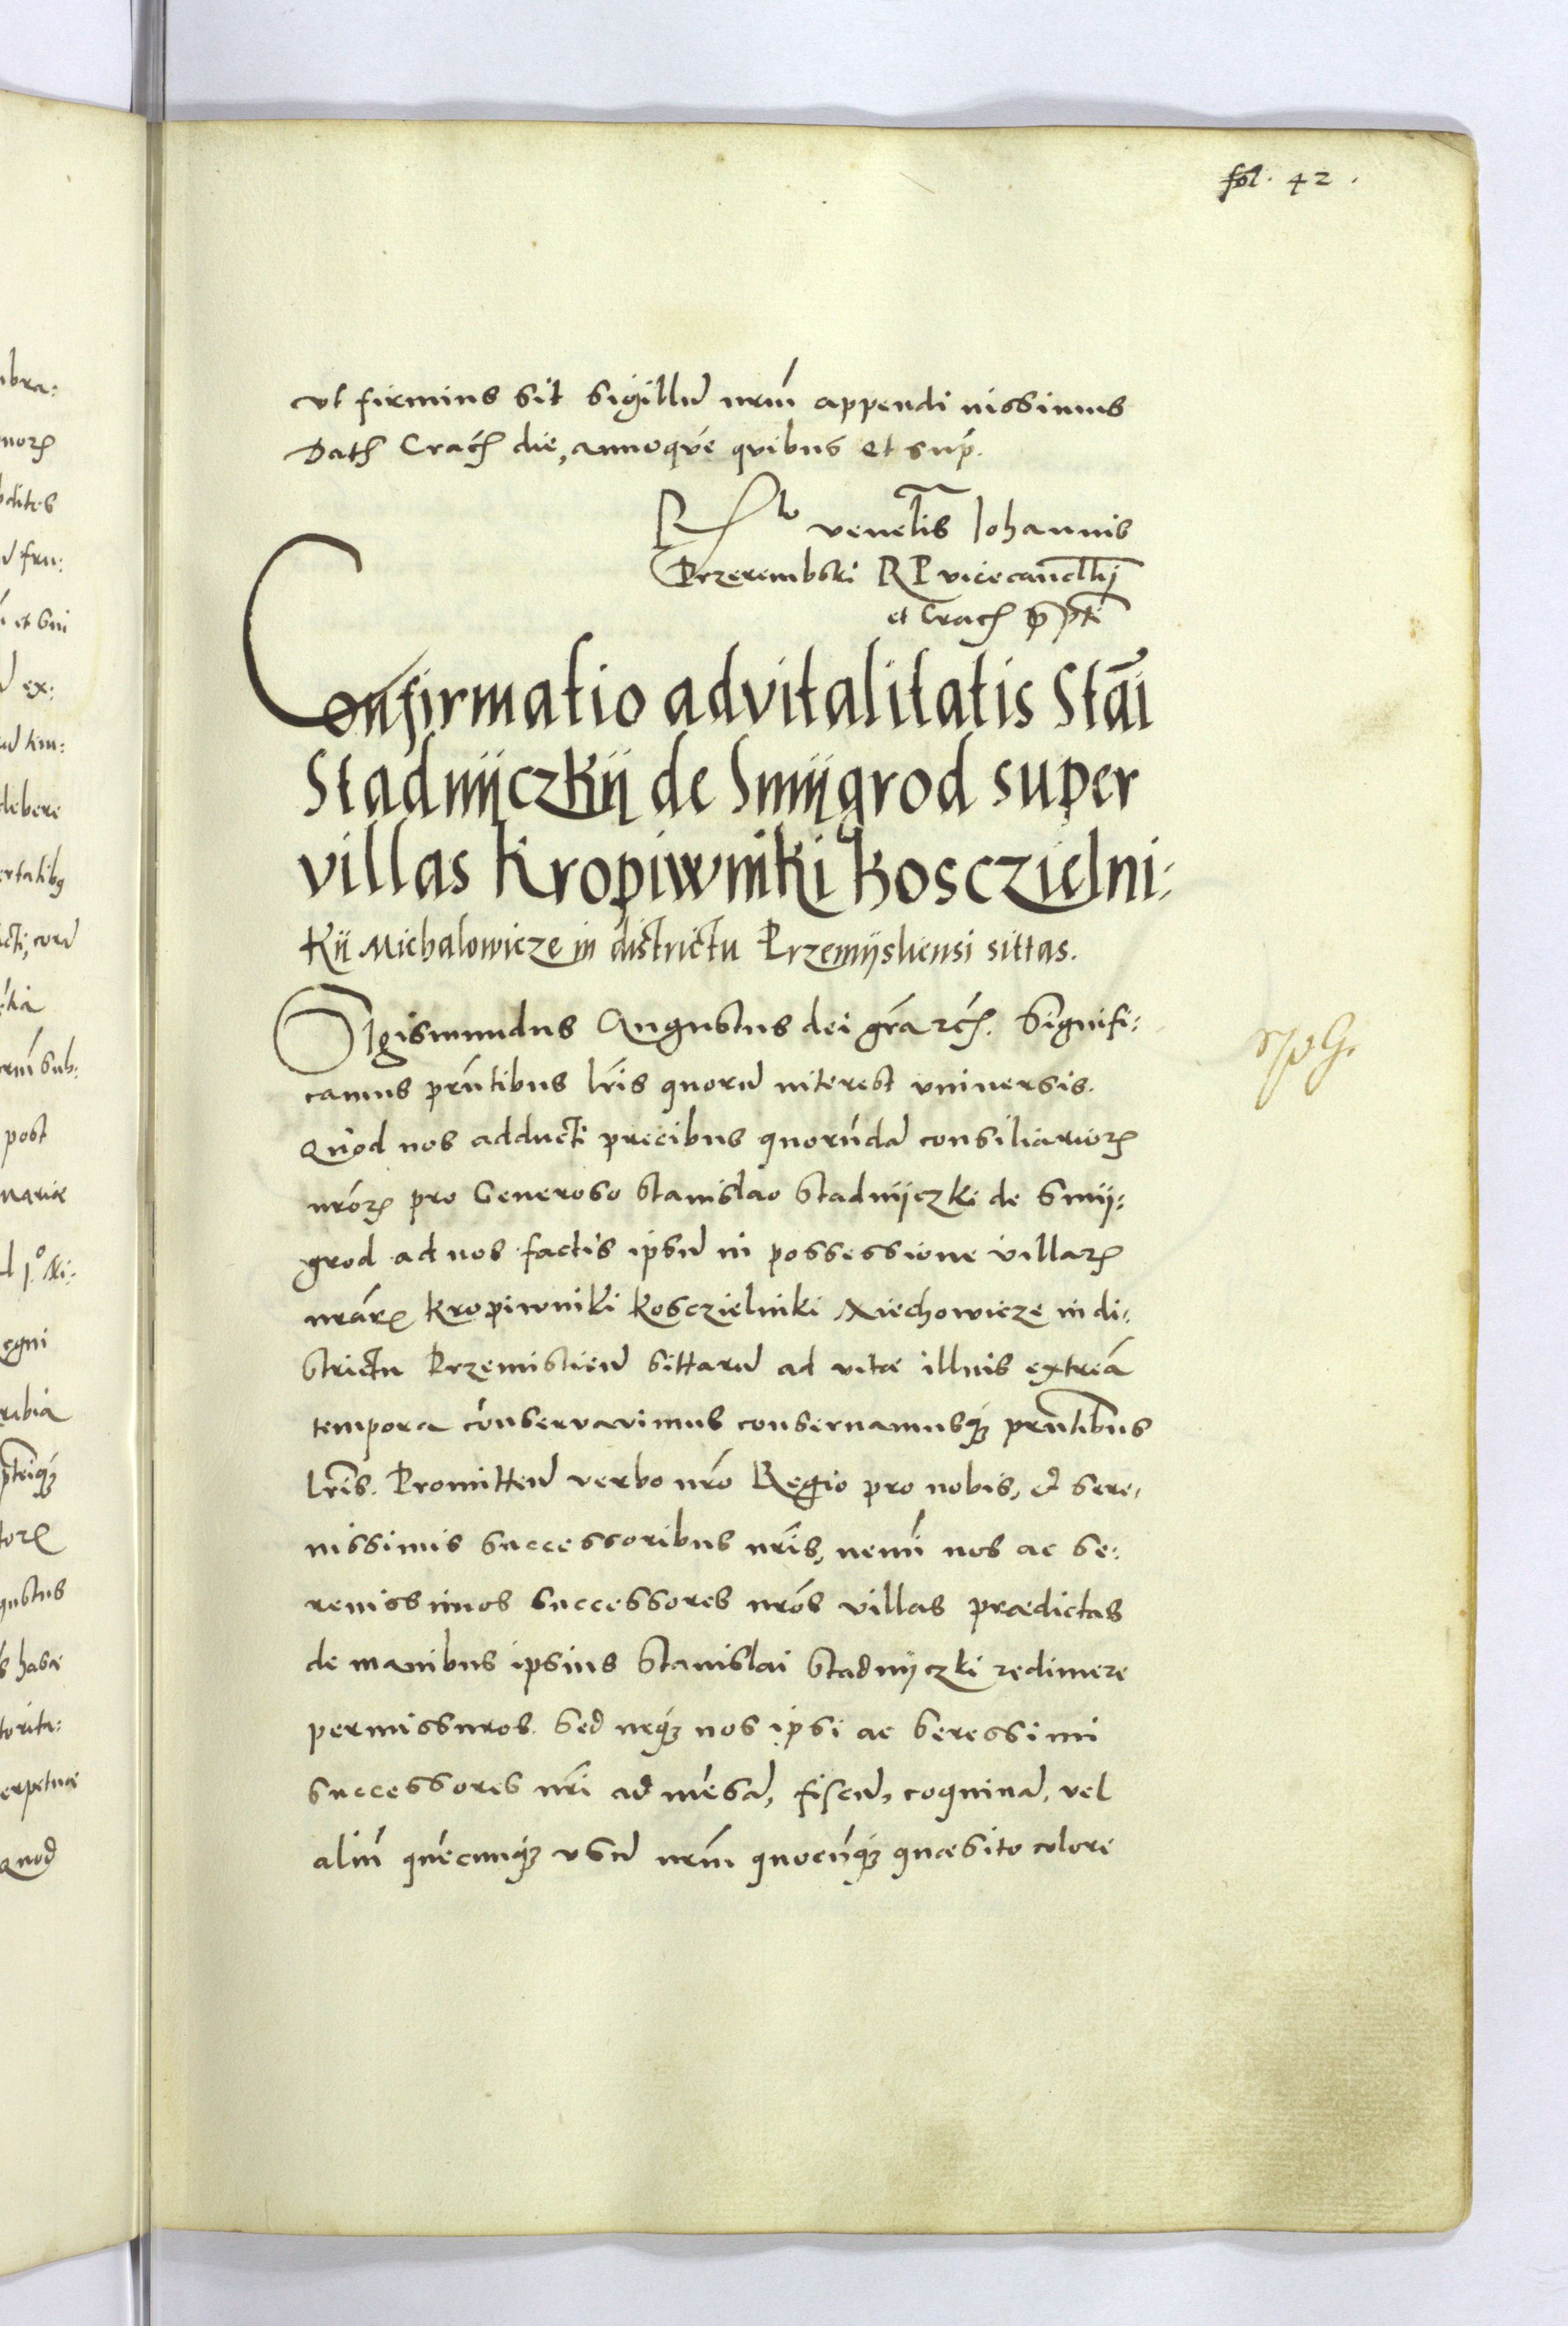 fol. 42.
vt firmius sit sigillū nrm̄ appendi iussimus
Datꝭ Cracꝭ die, annoque quibus et sup̄.
Rlo venelis Iohannis
Przerembski R P vicecancllij
et Cracꝭ
Confirmatio advitalitatis Stāi
Stadnijczkij de Smijgrod super
villas Kropiwniki Kosczielni:
kij Michalowicze in districtu Przemijsliensi sittas.
Sigismundus Augustus dei grā rcꝭ. Signifi:
camus prn̄tibus lr̄is quorū interest vniuersis.
Quod nos adducti precibus quorūdā consiliarioꝝ
nr̄oꝝ pro Generoso Stanislao Stadnijczki de Smij:
grod ad nos factis ipsū in possessione villaꝝ
nr̄aꝝ Kropiwniki Kosczielniki Miechowicze in di:
strictu Przemislieñ sittarū ad vitæ illius extreā
tempora conservavimus conseruamusqꝫ prn̄tibus
lr̄is. Promitteñ verbo nr̄o Regio pro nobis, et sere:
nissimis successoribus nr̄is, nemi nos ac se:
renissimos successores nr̄os villas prædictas
de manibus ipsius Stanislai Stadnijczki redimere
permissuros. Sed neqꝫ nos ipsi ac seressimi
successores nr̄i ad mēsā, fiscū, coquinā, vel
aliū quēcunqꝫ vsū nrm̄ quocūqꝫ quæsito colore